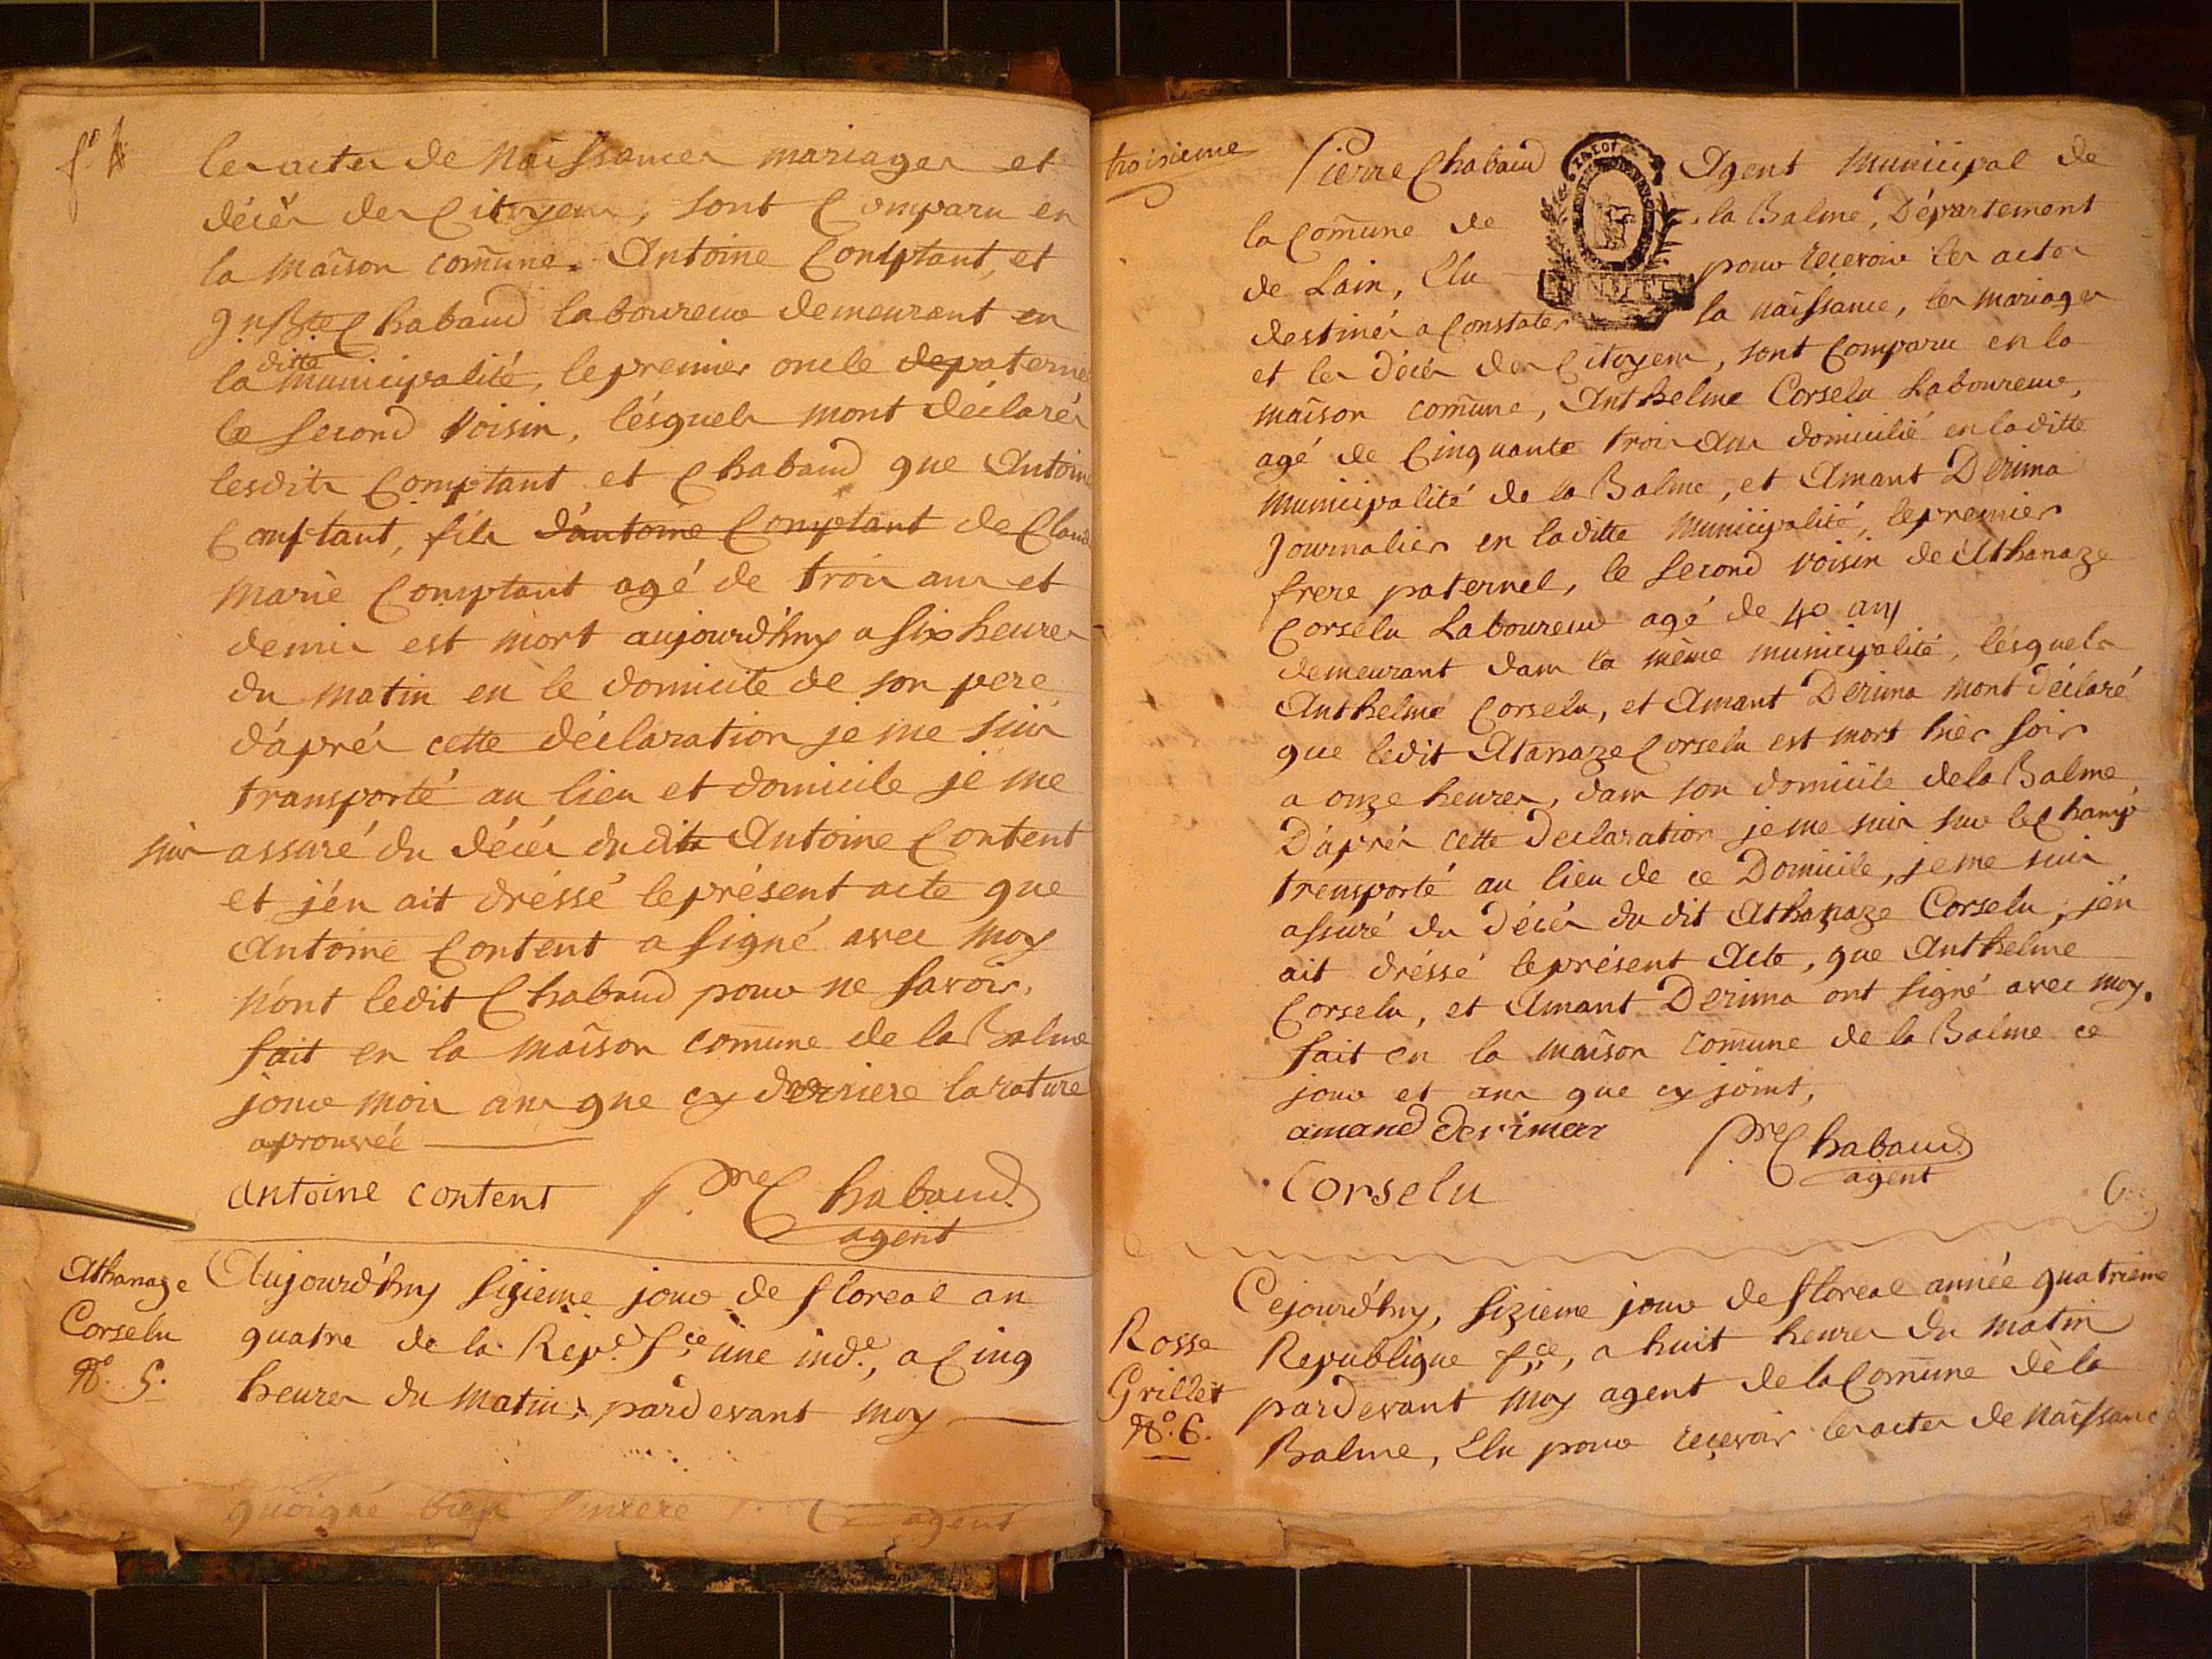 f.º 4
les actes de Naissances mariages et
décès des Citoyens, sont Comparu en
la maison comune. Antoine Comptant, et
Jn. Bte Chabaud laboureur demeurant en
la ditte municipalité, le premier oncle de paternel
le second Voisin, lésquels mont déclarés
lesdits Comptant et Chabaud que Antoine
Comptant, fils d'autoine Comptant de Claude
Marie Comptant agé de trois ans et
demis est mort aujourd'huy a six heures
du matin en le domicile de son pere,
d'aprés cette déclaration je me suis
transporté au lieu et domicile je me
suis assuré du décés dudit Antoine Content
et j'én ait dréssé le présent acte que
Antoine Content a signé avec moy
n'ont ledit Chabaud pour ne savoir,
fait en la maison comune de la Balme
jour mois ans que cy derriere la rature
aprouvée
antoine content Pre Chabaud
agent
Athanaze
Corselu
No. 5.
Aujourd'huy sizieme jour de floreal an
quatre de la Repe. fce une inde., a Cinq
heures du matin, pardevant moy
quoique bien
agent
troisieme
Pierre Chabaud Agent Municipal de
la Comune de la Balme, Département
de Lain, Elu pour recevoir les actes
destinés a Constater la naissance, les mariages
et les décés des Citoyens, sont Comparu en la
maison comune, Anthelme Corselu Laboureur,
agé de Cinquante trois Ans domicilié en laditte
Municipalité de la Balme, et Amant Derima
Journalier en laditte Municipalité, le premier
frere paternel, le second voisin de Athanaze
Corselu Laboureur agé de 40 ans
demeurant dans la même municipalité, lésquels
Anthelme Corselu, et Amant Derima mont déclaré
que ledit Atanaze Corselu est mort hier soir
a onze heures, dans son domicile de la Balme
D'aprés cette declaration je me suis sur le Champ
trensporté au lieu de ce Domicile, je me suis
assuré du décés du dit Athanaze Corselu, j'én
ait dréssé le présent Acte, que Anthelme
Corselu, et Amant Derima ont signé avec moy.
fait en la maison Comune de la Balme ce
jour et ans que cy joint,
amand derimaz Pre Chabaud
agent
Corselu
Rosse
Grillet
No. 6.
Cejourd'huy, sizieme jour de floreal année quatrieme
Republique fce, a huit heures du matin
pardevant moy agent de la Comune de la
Balme, Elu pour reçevoir les actes de Naissance